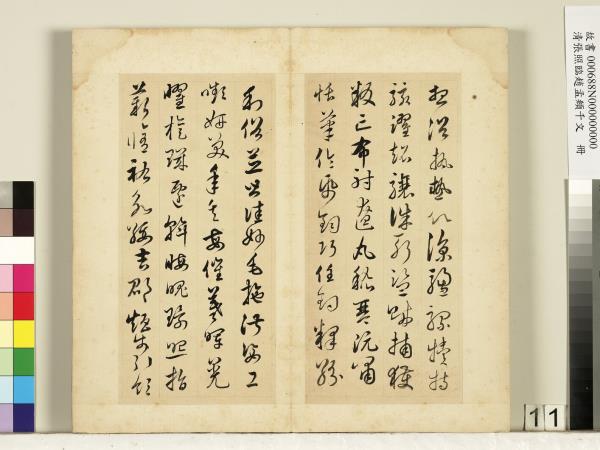 想浴執熱願涼驢騾犢特
駭躍超驤誅斬盜賊捕獲
叛亡布射遼丸嵇琴阮嘯
恬筆倫紙鈞巧任釣釋紛
利俗並皆佳妙毛施淑姿工
顰妍笑年矢每催羲暉晃
曜旋璣懸斡晦魄環照指
薪修祜永綏吉邵矩步引領
故書 000688N000000000
清張照臨趙孟頫千文 冊
11